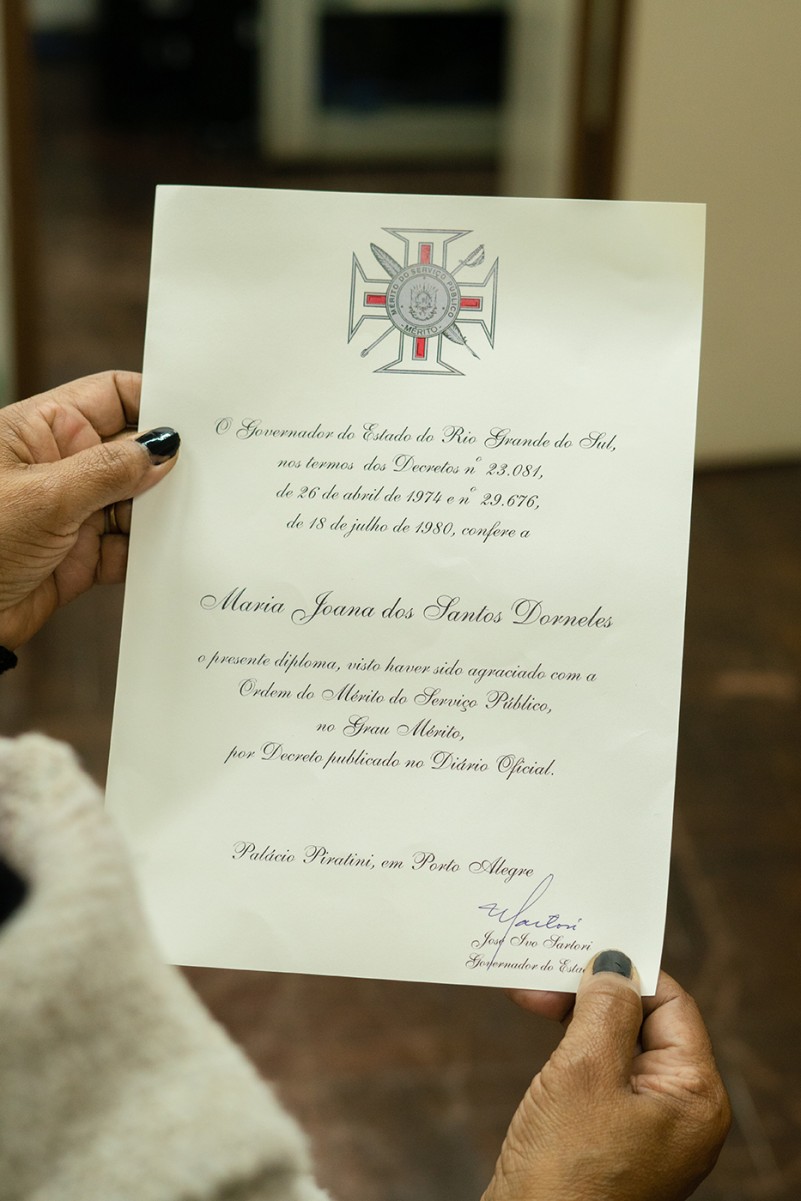 MÉRITO DO SERVIÇO PÚBLICO
MÉRITO
O Governador do Estado do Rio Grande do Sul,
nos termos dos Decretos nº 23.081,
de 26 de abril de 1974 e nº 29.676,
de 18 de julho de 1980, confere a
Maria Joana dos Santos Dorneles
o presente diploma, visto haver sido agraciado com a
Ordem do Mérito do Serviço Público,
no Grau Mérito,
por Decreto publicado no Diário Oficial.
Palácio Piratini, em Porto Alegre
Sartori
José Ivo Sartori
Governador do Esta